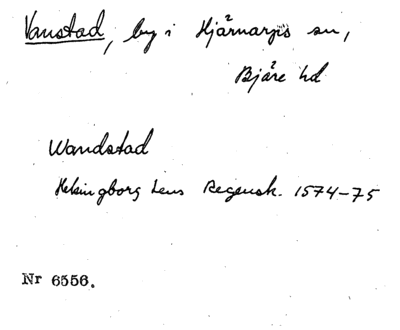 Vanstad, by i Hjärnarps sn,
Bjäre hd
Wandstad
Helsingborg Lens Regensk. 1574-75
Nr 6556.